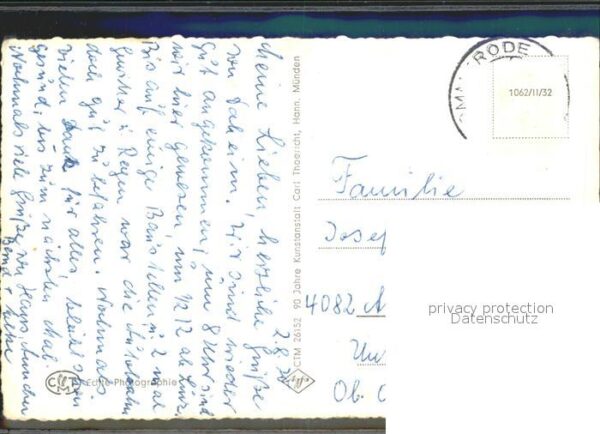 2.8.70
Meine Lieben, herzliche Grüße
von daheim. Wir sind wieder
gut angekommen, um 8 Uhr sind
wir hier gewesen, um 1/2 12 ab Linz.
Bis auf einige Baustellen u. 2 mal
Gewitter u. Regen war die Autobahn
doch gut zu befahren. Nochmals
vielen Dank für alles, bleibt schön
gesund, bis zum nächsten Mal.
Nochmals viele Grüße von Hans,
Bernd +
CTM 26152 90 Jahre Kunstanstalt Carl Thoericht, Hann. Münden
Echte Photographie
RODE
1062/II/32
Familie
Josef
4082
privacy protection
Datenschutz